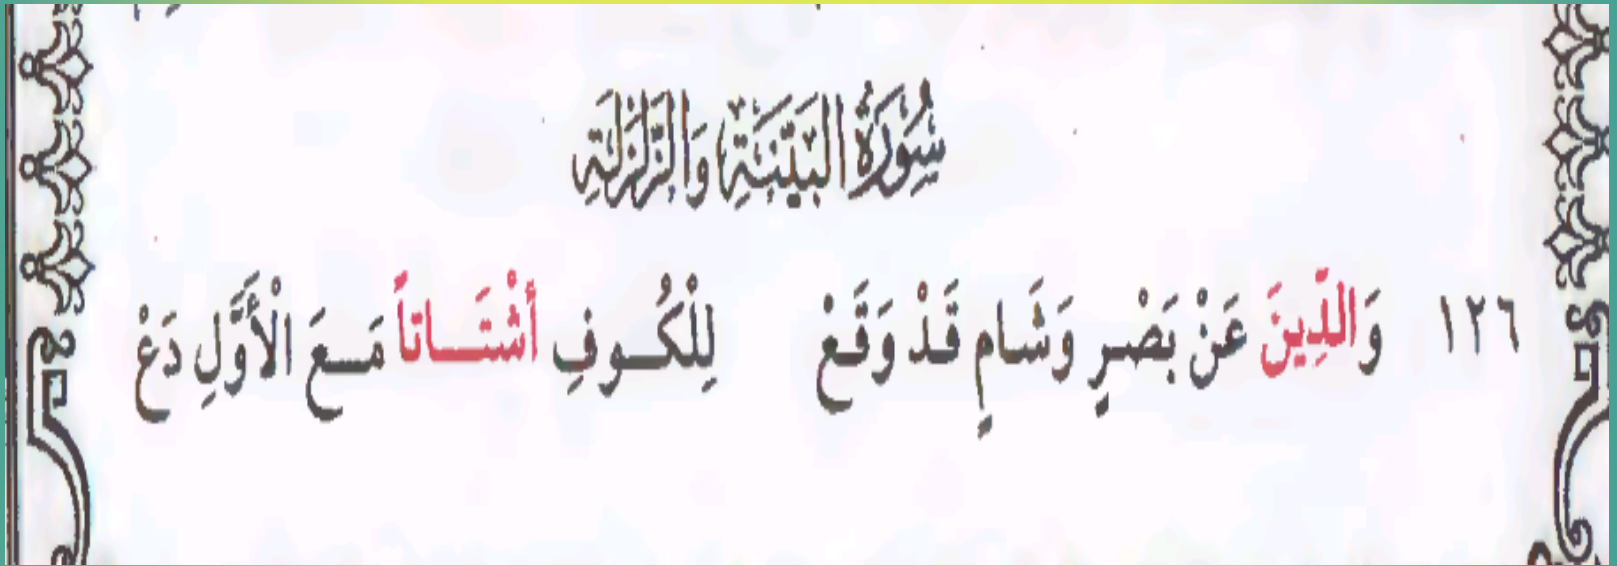 سُورَةُ الْبَيِّنَةِ وَالزَّلْزَلَةِ
١٢٦ وَالدِّينَ عَنْ بَصْرٍ وَشَامٍ قَدْ وَقَعْ لِلْكُوفِ أَشْتَاتاً مَعَ الْأَوَّلِ دَعْ